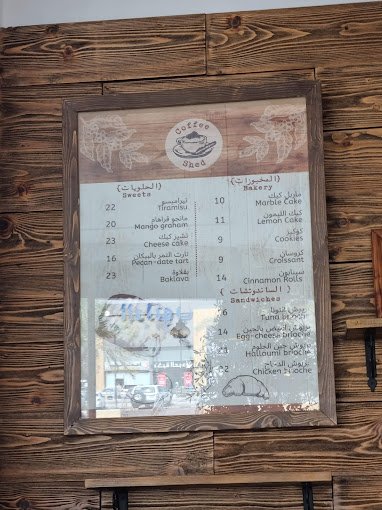 Coffee
Shed
{الحلويات}
Sweets
22 تيراميسو
Tiramisu
20 مانجو قراهام
Mango graham
23 تشيز كيك
Cheese cake
16 تارت التمر بالبيكان
Pecan-date tart
23 بقلاوة
Baklava
{المخبوزات}
Bakery
10 ماربل كيك
Marble Cake
11 كيك الليمون
Lemon Cake
9 كوكيز
Cookies
9 كروسان
Croissant
14 سينابون
Cinnamon Rolls
{الساندوتشات}
Sandwiches
6
Tuna
14 بريوش البيض بالجبن
Egg-cheese brioche
بريوش جبن الحلوم
Halloumi brioche
بريوش الدجاج
Chicken brioche